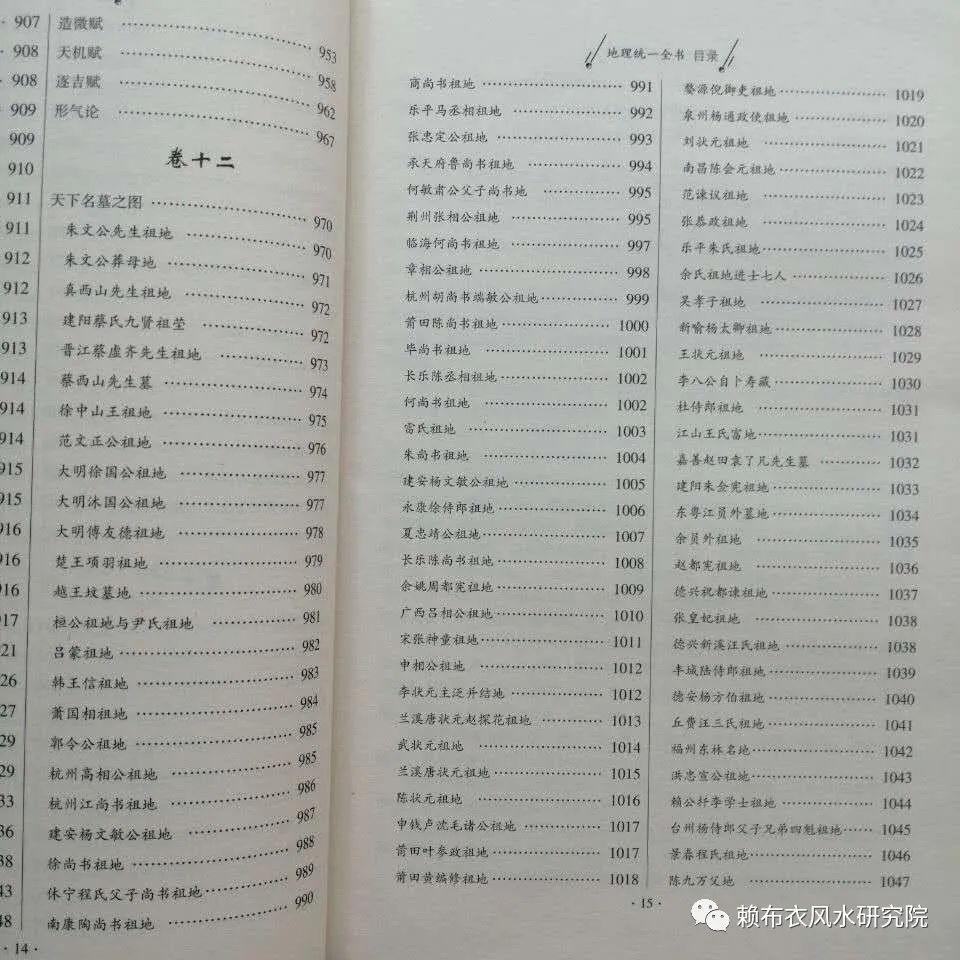 907
908
908
909
909
910
911
911
912
912
913
913
914
914
914
915
915
916
916
916
917
921
26
27
29
29
33
36
38
43
48
造微赋 ⋯⋯ 953
天机赋 ⋯⋯ 958
逐吉赋 ⋯⋯ 962
形气论 ⋯⋯ 967
卷十二
天下名墓之图 ⋯⋯ 970
朱文公先生祖地 ⋯⋯ 970
朱文公葬母地 ⋯⋯ 971
真西山先生祖地 ⋯⋯ 972
建阳蔡氏九贤祖茔 ⋯⋯ 972
晋江蔡虚斋先生祖地 ⋯⋯ 973
蔡西山先生墓 ⋯⋯ 974
徐中山王祖地 ⋯⋯ 975
范文正公祖地 ⋯⋯ 976
大明徐国公祖地 ⋯⋯ 977
大明沐国公祖地 ⋯⋯ 977
大明傅友德祖地 ⋯⋯ 978
楚王项羽祖地 ⋯⋯ 979
越王坟墓地 ⋯⋯ 980
桓公祖地与尹氏祖地 ⋯⋯ 981
吕蒙祖地 ⋯⋯ 982
韩王信祖地 ⋯⋯ 983
萧国相祖地 ⋯⋯ 984
郭令公祖地 ⋯⋯ 985
杭州高相公祖地 ⋯⋯ 985
杭州江尚书祖地 ⋯⋯ 986
建安杨文敏公祖地 ⋯⋯ 987
徐尚书祖地 ⋯⋯ 988
休宁程氏父子尚书祖地 ⋯⋯ 989
南康陶尚书祖地 ⋯⋯ 990
· 14 ·
地理统一全书 目录
商尚书祖地 ⋯⋯ 991
乐平马丞相祖地 ⋯⋯ 992
张忠定公祖地 ⋯⋯ 993
承天府鲁尚书祖地 ⋯⋯ 994
何敏肃公父子尚书地 ⋯⋯ 995
荆州张相公祖地 ⋯⋯ 995
临海何尚书祖地 ⋯⋯ 997
章相公祖地 ⋯⋯ 998
杭州胡尚书端敏公祖地 ⋯⋯ 999
莆田陈尚书祖地 ⋯⋯ 1000
毕尚书祖地 ⋯⋯ 1001
长乐陈丞相祖地 ⋯⋯ 1002
何尚书祖地 ⋯⋯ 1002
雷氏祖地 ⋯⋯ 1003
朱尚书祖地 ⋯⋯ 1004
建安杨文敏公祖地 ⋯⋯ 1005
永康徐侍郎祖地 ⋯⋯ 1006
夏忠靖公祖地 ⋯⋯ 1007
长乐陈尚书祖地 ⋯⋯ 1008
余姚周都宪祖地 ⋯⋯ 1009
广西吕相公祖地 ⋯⋯ 1010
宋张神童祖地 ⋯⋯ 1011
申相公祖地 ⋯⋯ 1012
李状元主泛并结地 ⋯⋯ 1012
兰溪唐状元赵探花祖地 ⋯⋯ 1013
武状元祖地 ⋯⋯ 1014
兰溪唐状元祖地 ⋯⋯ 1015
陈状元祖地 ⋯⋯ 1016
申钱卢沈毛诸公祖地 ⋯⋯ 1017
莆田叶参政祖地 ⋯⋯ 1017
莆田黄编修祖地 ⋯⋯ 1018
婺源倪御吏祖地 ⋯⋯ 1019
泉州杨通政使祖地 ⋯⋯ 1020
刘状元祖地 ⋯⋯ 1021
南昌陈会元祖地 ⋯⋯ 1022
范谏议祖地 ⋯⋯ 1023
张恭政祖地 ⋯⋯ 1024
乐平朱氏祖地 ⋯⋯ 1025
余氏祖地进士七人 ⋯⋯ 1026
吴孝子祖地 ⋯⋯ 1027
新喻杨太卿祖地 ⋯⋯ 1028
王状元祖地 ⋯⋯ 1029
李八公自卜寿藏 ⋯⋯ 1030
杜侍郎祖地 ⋯⋯ 1031
江山王氏富地 ⋯⋯ 1031
嘉善赵田袁了凡先生墓 ⋯⋯ 1032
建阳朱佥宪祖地 ⋯⋯ 1033
东粤江员外墓地 ⋯⋯ 1034
余员外祖地 ⋯⋯ 1035
赵都宪祖地 ⋯⋯ 1036
德兴祝都谏祖地 ⋯⋯ 1037
张皇妃祖地 ⋯⋯ 1038
德兴新溪汪氏祖地 ⋯⋯ 1038
丰城陆侍郎祖地 ⋯⋯ 1039
德安杨方伯祖地 ⋯⋯ 1040
丘费汪三氏祖地 ⋯⋯ 1041
福州东林名地 ⋯⋯ 1042
洪忠宣公祖地 ⋯⋯ 1043
赖公扦李学士祖地 ⋯⋯ 1044
台州杨侍郎父子兄弟四魁祖地 ⋯⋯ 1045
景春程氏祖地 ⋯⋯ 1046
陈九万父地 ⋯⋯ 1047
· 15 ·
赖布衣风水研究院